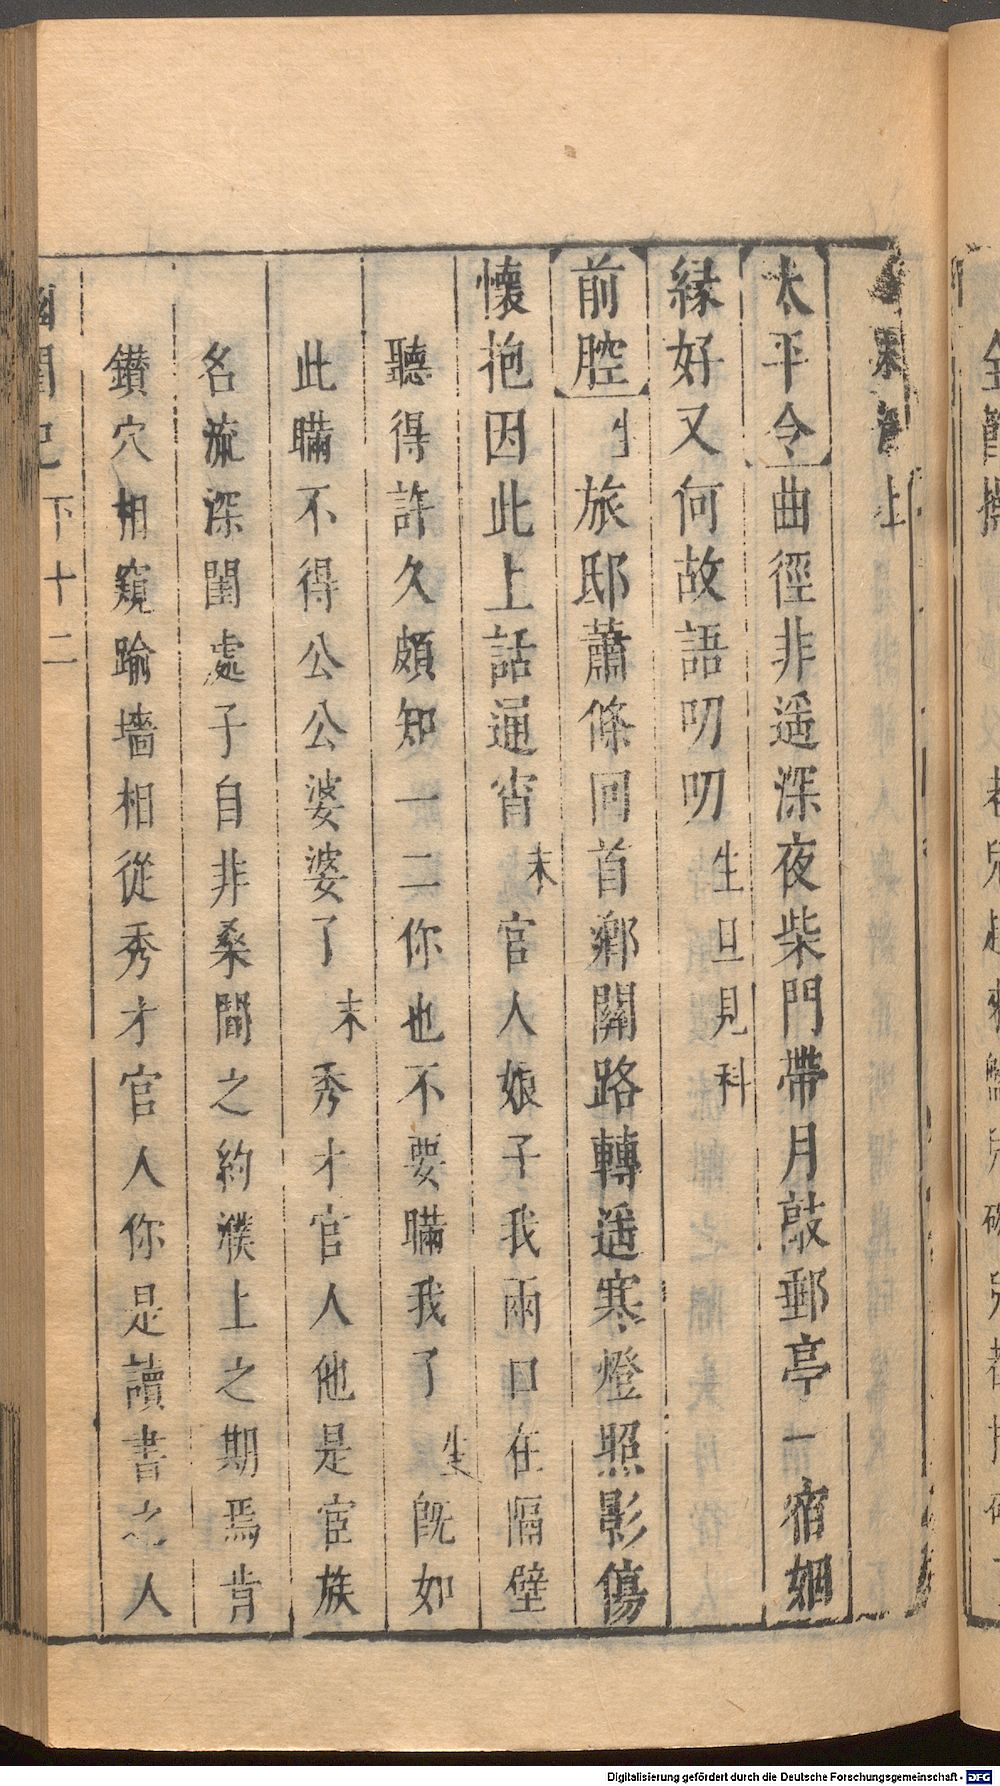 末淨上
太平令曲徑非遥深夜柴門帶月敲郵亭一宿姻
緣好又何故語叨叨生旦見科
前腔生旅邸蕭條回首鄉關路轉遥寒燈照影傷
懷抱因此上話通宵末官人娘子我兩口在隔壁
聽得許久頗知一二你也不要瞞我了生旣如
此瞞不得公公婆婆了末秀才官人他是宦族
名流深閨處子自非桑間之約濮上之期焉肯
鑚穴相窺踰墻相從秀才官人你是讀書之人
幽閨記 下 十二
Digitalisierung gefördert durch die Deutsche Forschungsgemeinschaft - DFG